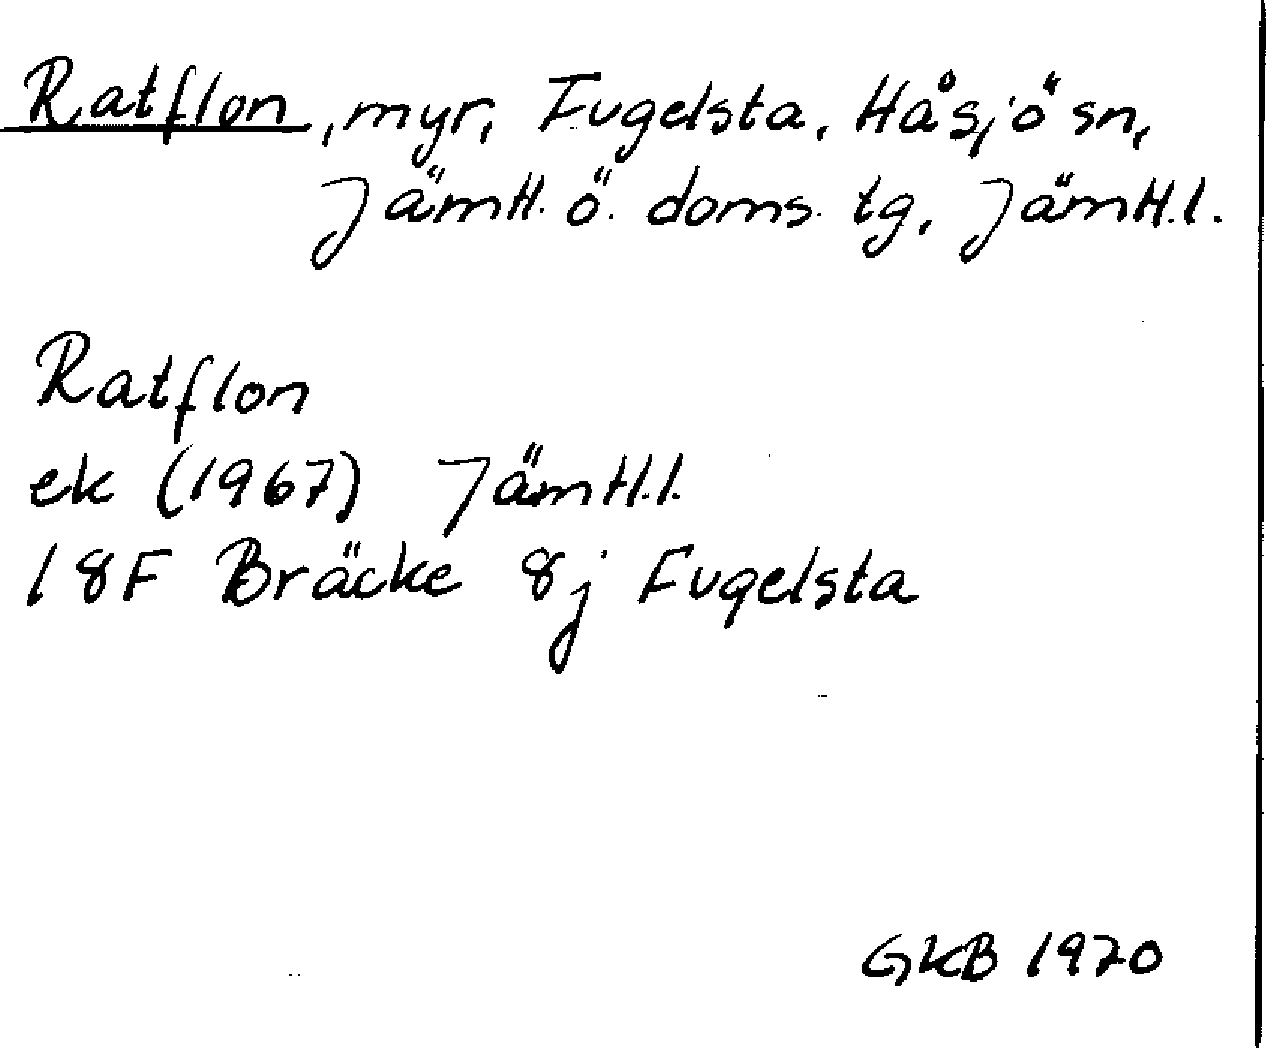 Ratflon, myr, Fugelsta, Håsjö sn,
Jämtl. ö. doms. tg, Jämtl. l.
Ratflon
ek (1967) Jämtl. l.
18F Bräcke 8j Fugelsta
GKB 1970